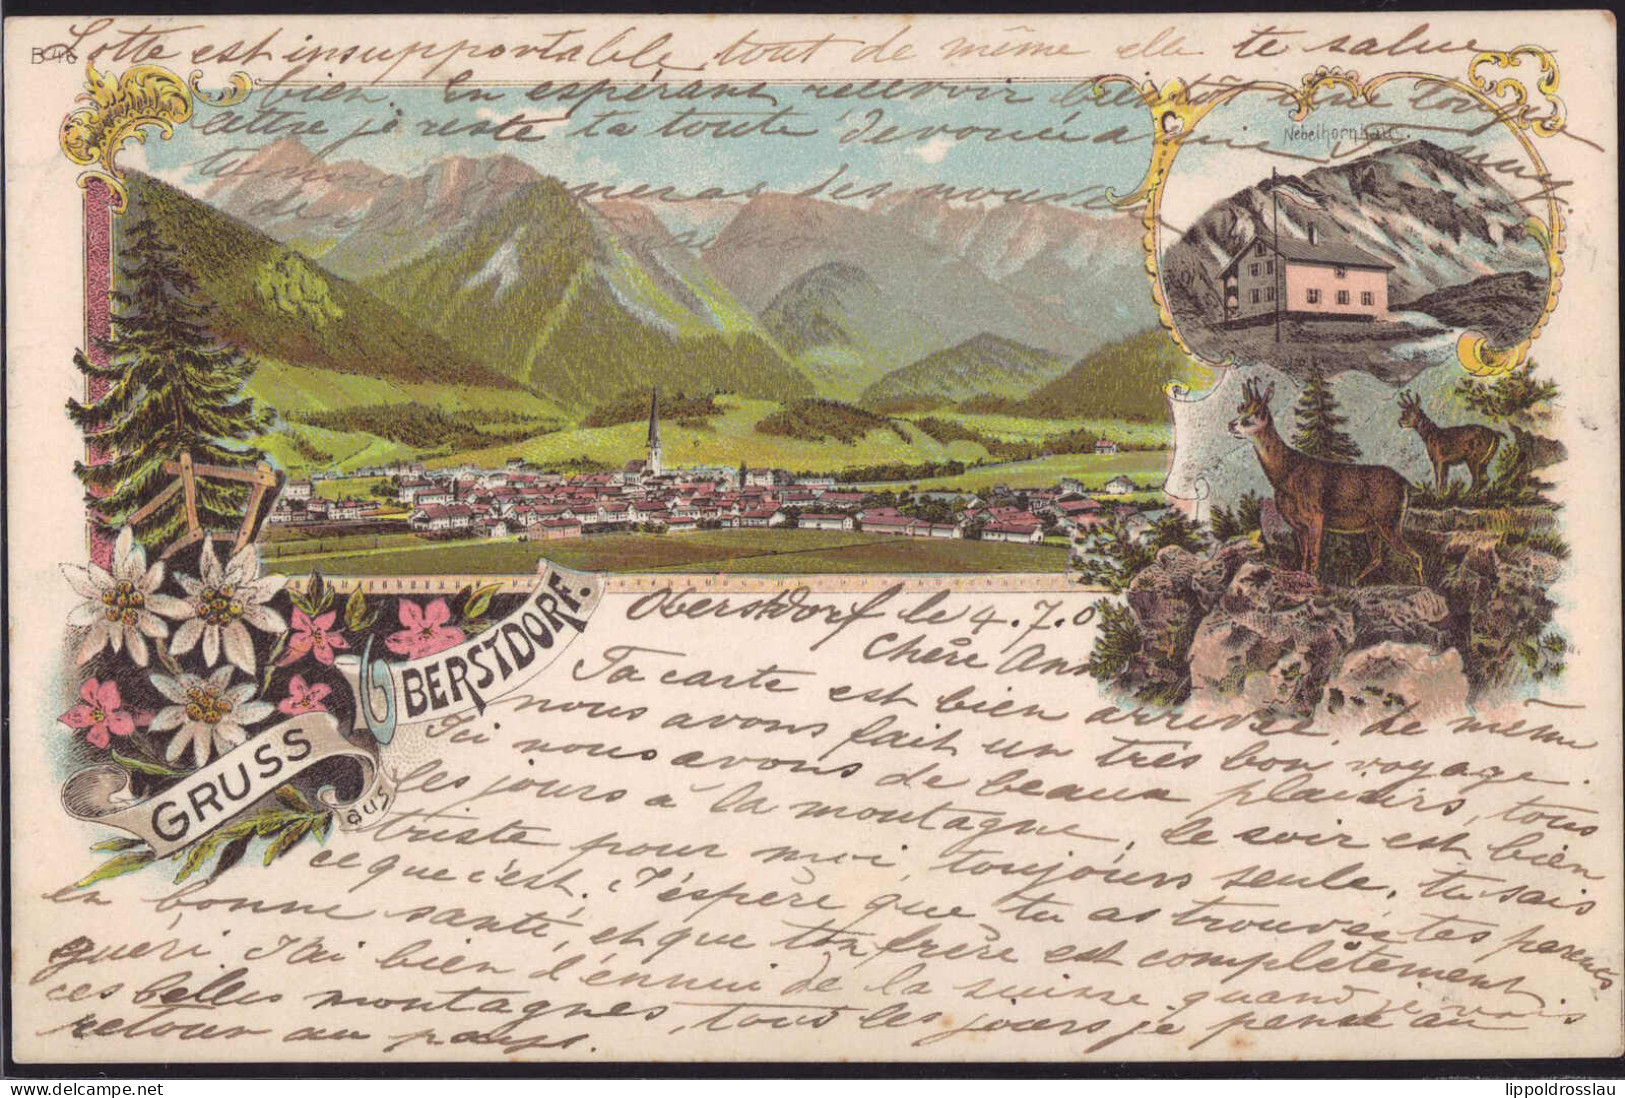 B 46
Lotte est insupportable, tout de même elle te salue
bien. En espérant recevoir bientôt une longue
lettre je reste ta toute dévouée amie
Nebelhornhaus.
Oberstdorf le 4.7.0
Chère Ann
Ta carte est bien arrivée, de même
nous avons fait un très bon voyage.
Ici nous avons de beaux plaisirs, tous
les jours à la montagne, le soir est bien
triste pour moi, toujours seule, tu sais
ce que c'est. J'espère que tu as trouvée tes parents
en bonne santé, et que ton frère est complètement
guéri. J'ai bien l'ennui de la suisse quand je vois
ces belles montagnes, tous les jours je pense au
retour au pays.
GRUSS
aus
OBERSTDORF.
lippoldrosslau